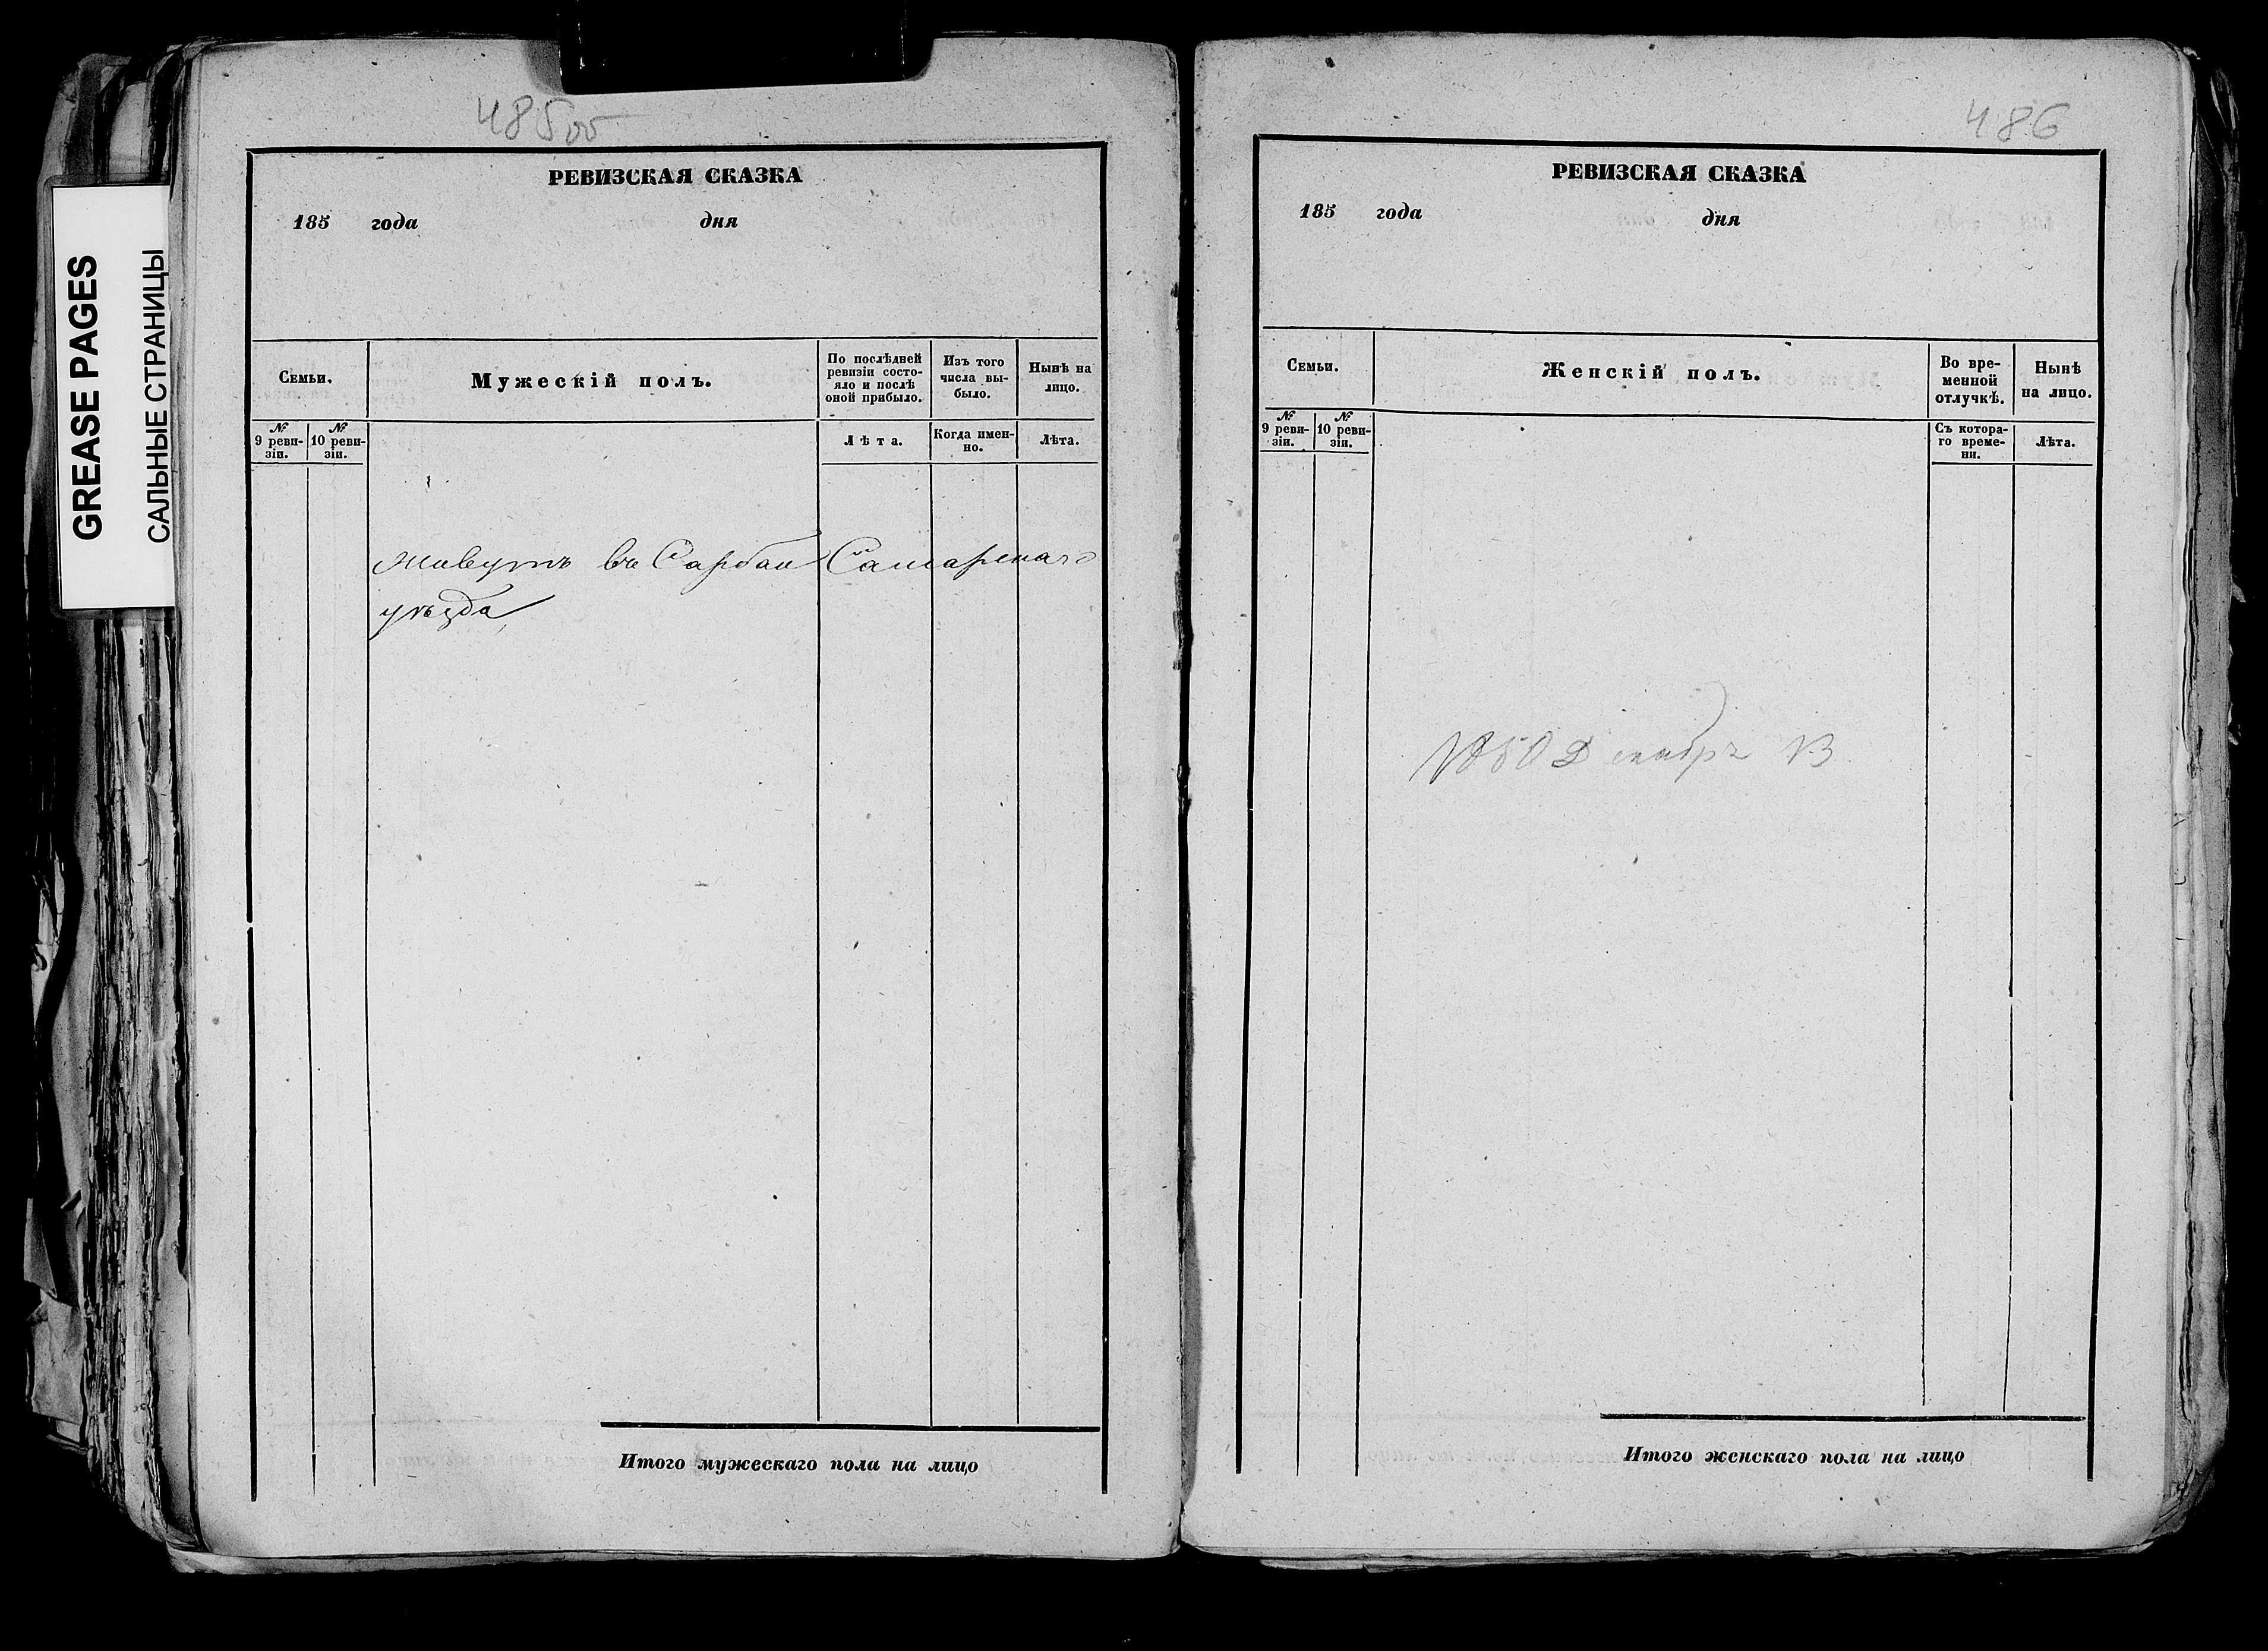 GREASE PAGES
САЛЬНЫЕ СТРАНИЦЫ
485об
РЕВИЗСКАЯ СКАЗКА
185 года дня
Семьи.
Мужескій полъ.
По послѣдней
ревизіи состо-
яло и послѣ
оной прибыло.
Изъ того
числа вы-
было.
Нынѣ на
лицо.
№
9 реви-
зіи.
№
10 реви-
зіи.
Лѣта.
Когда имен-
но.
Лѣта.
Живутъ въ Сарбаи Самарскаго
уѣзда
Итого мужескаго пола на лицо
486
РЕВИЗСКАЯ СКАЗКА
185 года дня
Семьи.
Женскій полъ.
Во вре-
менной
отлучкѣ.
Нынѣ
на лицо.
№
9 реви-
зіи.
№
10 реви-
зіи.
Съ котора-
го време-
ни.
Лѣта.
1850 Декабрь 13
Итого женскаго пола на лицо